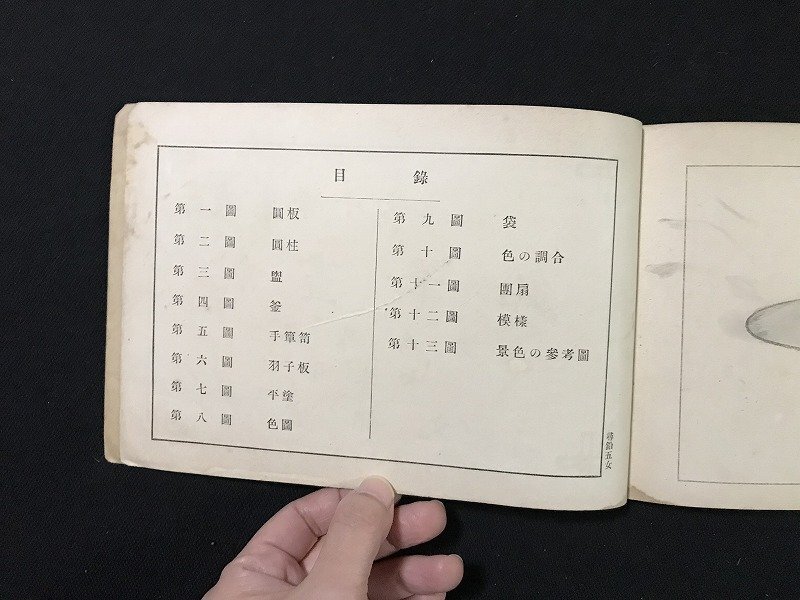 目錄
第一圖 圓板
第二圖 圓柱
第三圖 盥
第四圖 釜
第五圖 手簞笥
第六圖 羽子板
第七圖 平塗
第八圖 色圖
第九圖 袋
第十圖 色の調合
第十一圖 團扇
第十二圖 模樣
第十三圖 景色の參考圖
尋鉛五女